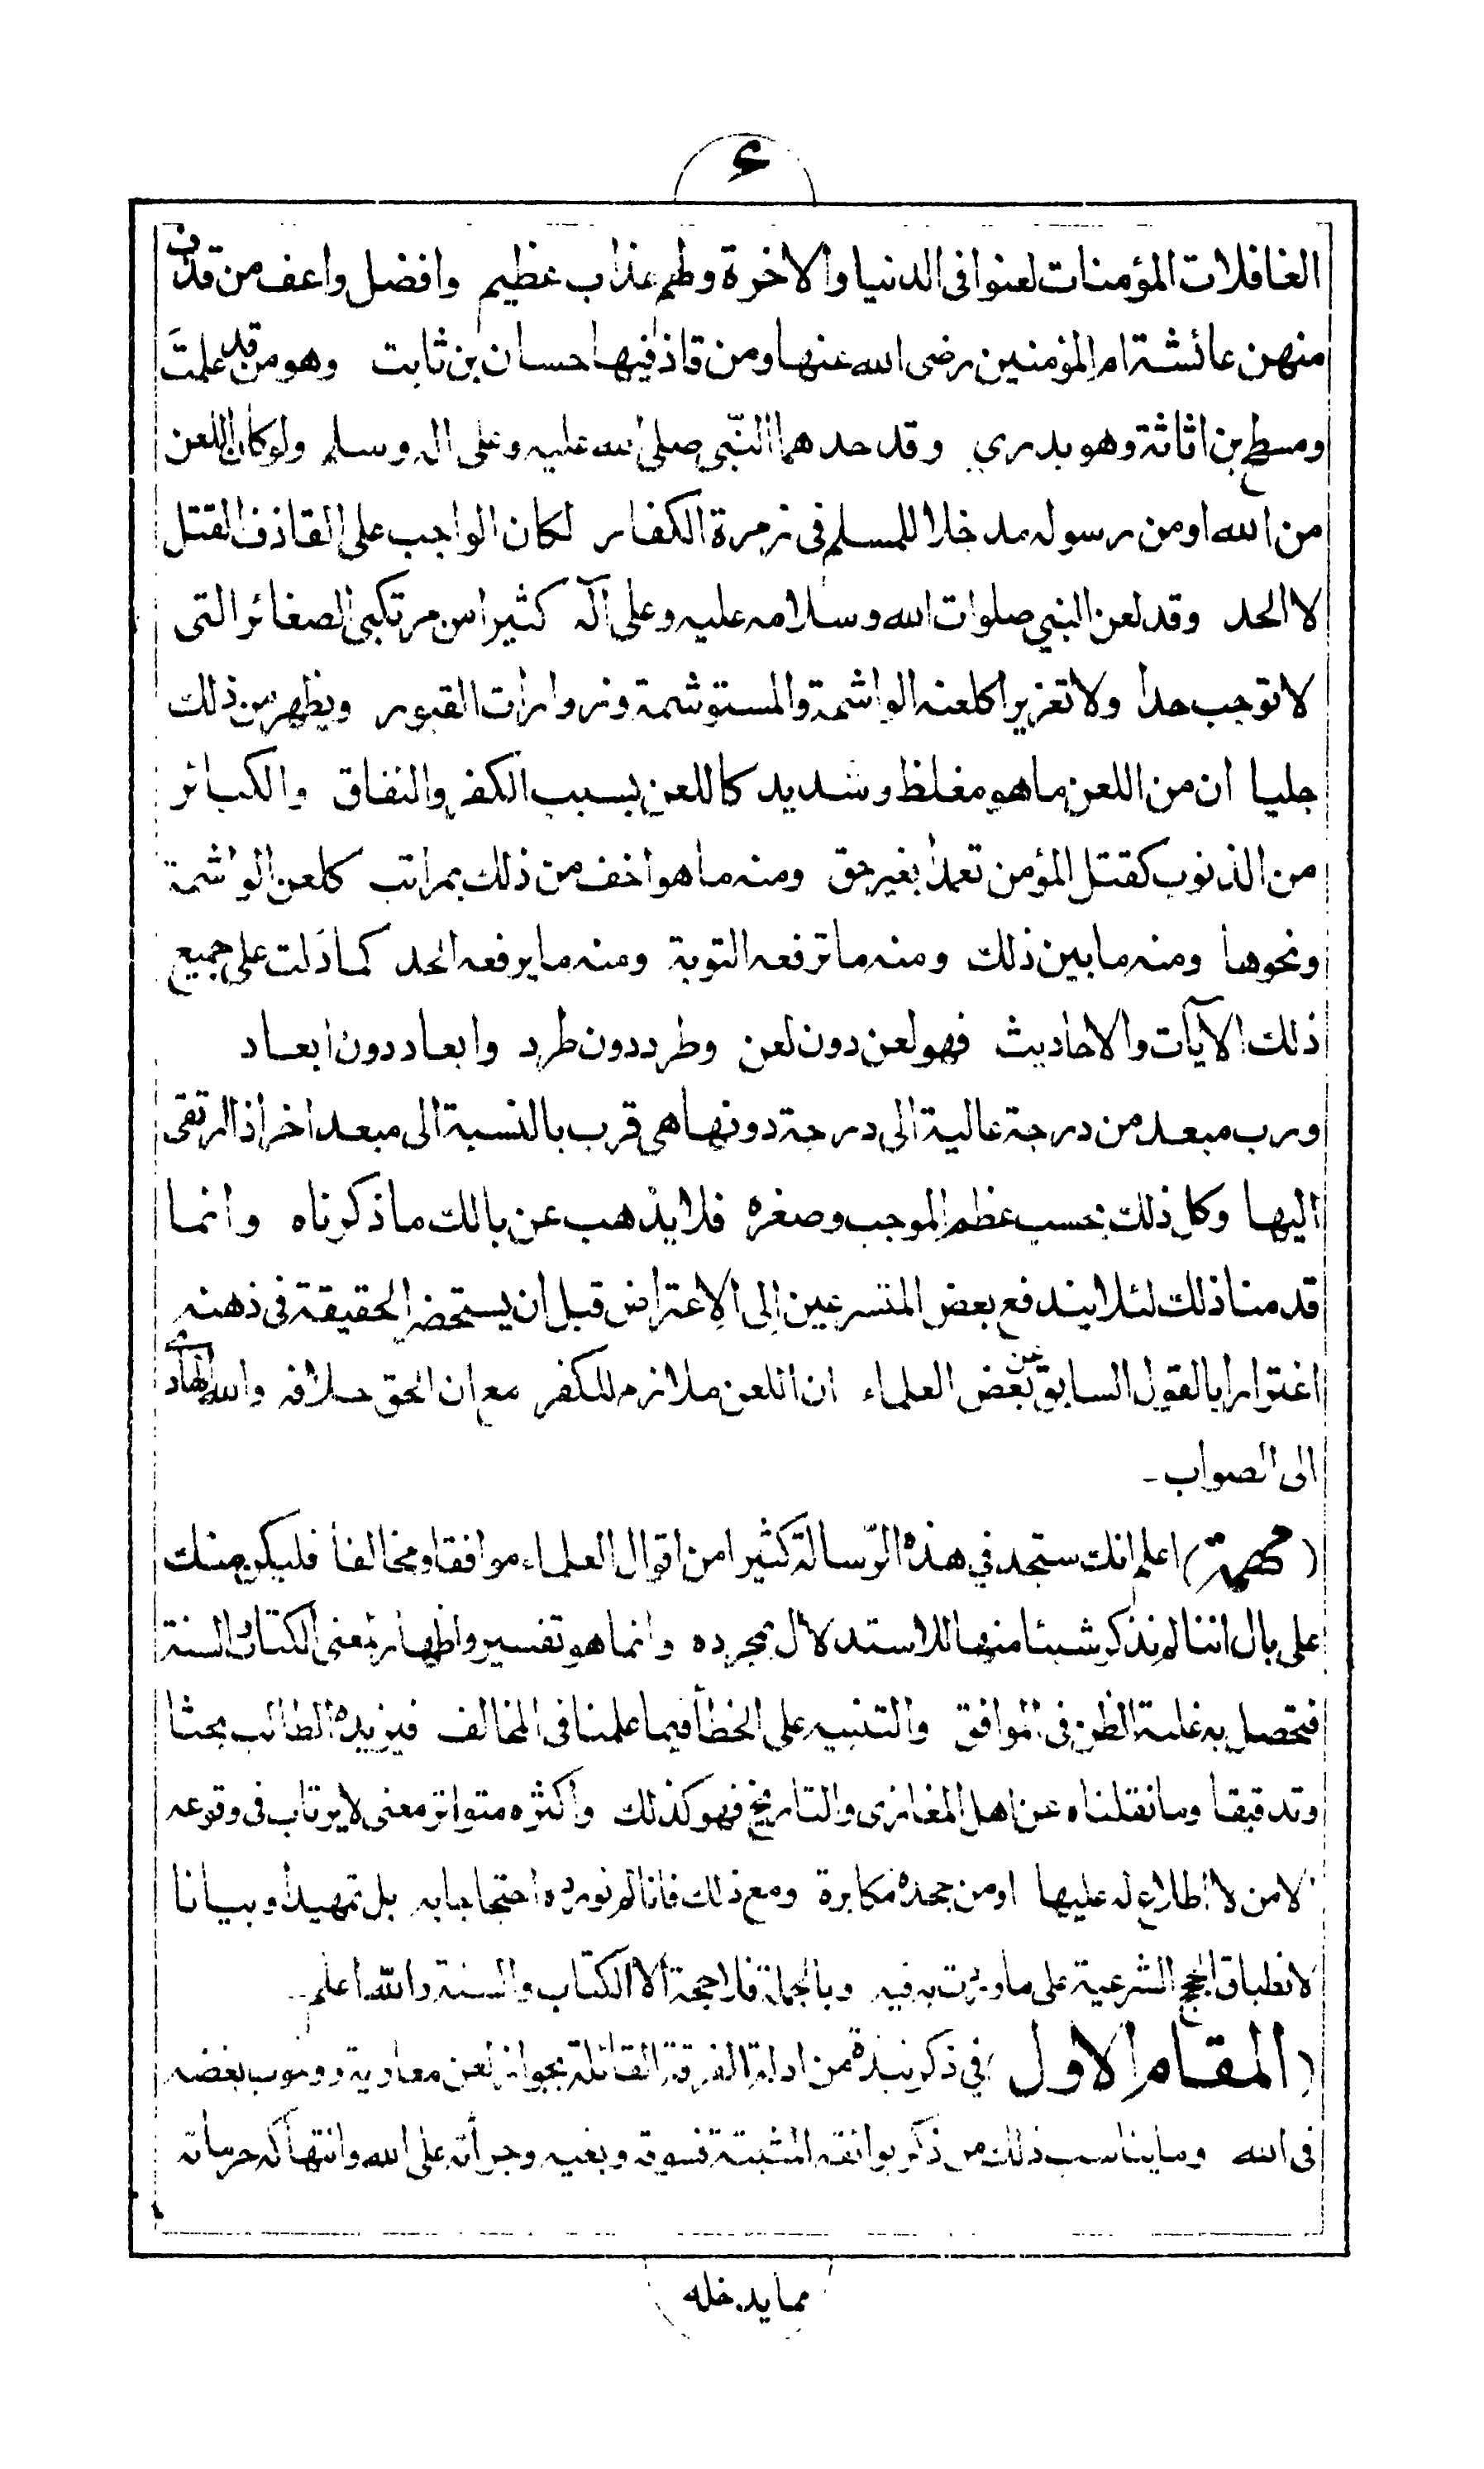 ٤
الغافلات المؤمنات لعنوا فى الدنيا والاخرة ولهم عذاب عظيم وافضل واعف من قذفن
منهن عائشة ام المؤمنين رضى الله عنها ومن قاذفيها حسان بن ثابت وهو من قد علمت
ومسطح بن اثاثة وهو بدري وقد حدهما النّبي صلى الله عليه وعلى اله وسلم ولو كان اللعن
من الله او من رسوله مدخلا للمسلم فى زمرة الكفار لكان الواجب على القاذف القتل
لا الحد وقد لعن النبي صلوات الله وسلامه عليه وعلى آله كثيرا من مرتكبي الصغائر التى
لا توجب حدا ولا تعزيرا كلعنه الواشمة والمستوشمة وزوارات القبور ويظهر من ذلك
جليا ان من اللعن ما هو مغلظ وشديد كاللعن بسبب الكفر والنفاق والكبائر
من الذنوب كقتل المؤمن تعمدا بغير حق ومنه ما هو اخف من ذلك بمراتب كلعن الواشمة
ونحوها ومنه ما بين ذلك ومنه ما ترفعه التوبة ومنه ما يرفعه الحد كما دلت على جميع
ذلك الآيات والاحاديث فهو لعن دون لعن وطرد دون طرد وابعاد دون ابعاد
ورب مبعد من درجة عالية الى درجة دونها هى قرب بالنسبة الى مبعد اخر اذا ارتقى
اليها وكل ذلك بحسب عظم الموجب وصغره فلا يذهب عن بالك ما ذكرناه وانما
قدمنا ذلك لئلا يندفع بعض المتسرعين الى الاعتراض قبل ان يستحضر الحقيقة فى ذهنه
اغترارا بالقول السابق عن بعض العلماء ان اللعن ملازم للكفر مع ان الحق خلافه والله الهادى
الى الصواب -
(مهمة) اعلم انك ستجد في هذه الرّسالة كثيرا من اقوال العلماء موافقا ومخالفا فليكن منك
على بال اننا لم نذكر شيئا منها للاستدلال بمجرده وانما هو تفسير واظهار لمعنى الكتاب والسنة
فتحصل به غلبة الظن فى الموافق والتنبيه على الخطأ فيما علمنا فى المخالف فيزيده الطالب بحثا
وتدقيقا وما نقلناه عن اهل المغازى والتاريخ فهو كذلك واكثره متواتر معنى لا يرتاب فى وقوعه
الا من لا اطلاع له عليها او من جحده مكابرة ومع ذلك فانا لم نورده احتجاجا به بل تمهيدا وبيانا
لانطباق الحجج الشرعية على ما وردت به فيه وبالجملة فلا حجة الا الكتاب والسنة والله اعلم
(المقام الاول) في ذكر نبذة من ادلة الفرقة القائلة بجواز لعن معاوية ووجوب بغضه
فى الله وما يناسب ذلك من ذكر بوائقه المثبتة فسوقه وبغيه وجرأته على الله وانتهاكه حرماته
مما يدخله